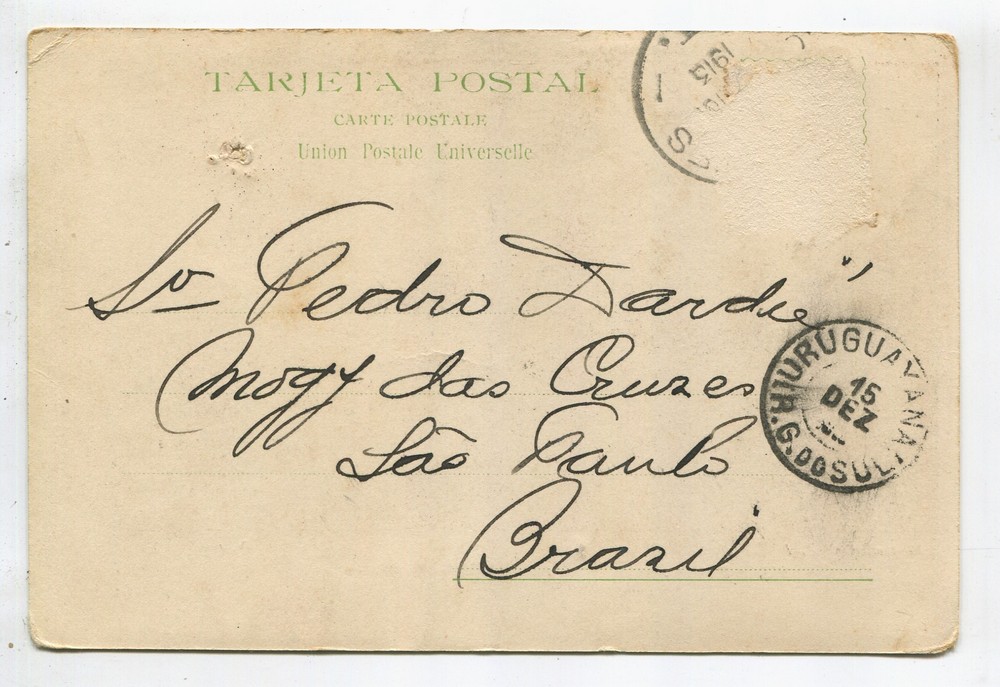 TARJETA POSTAL
CARTE POSTALE
Union Postale Universelle
1913
Sr Pedro
Mogy das Cruzes
São Paulo
Brazil
URUGUAYANA
15
DEZ
R.G.DO SUL